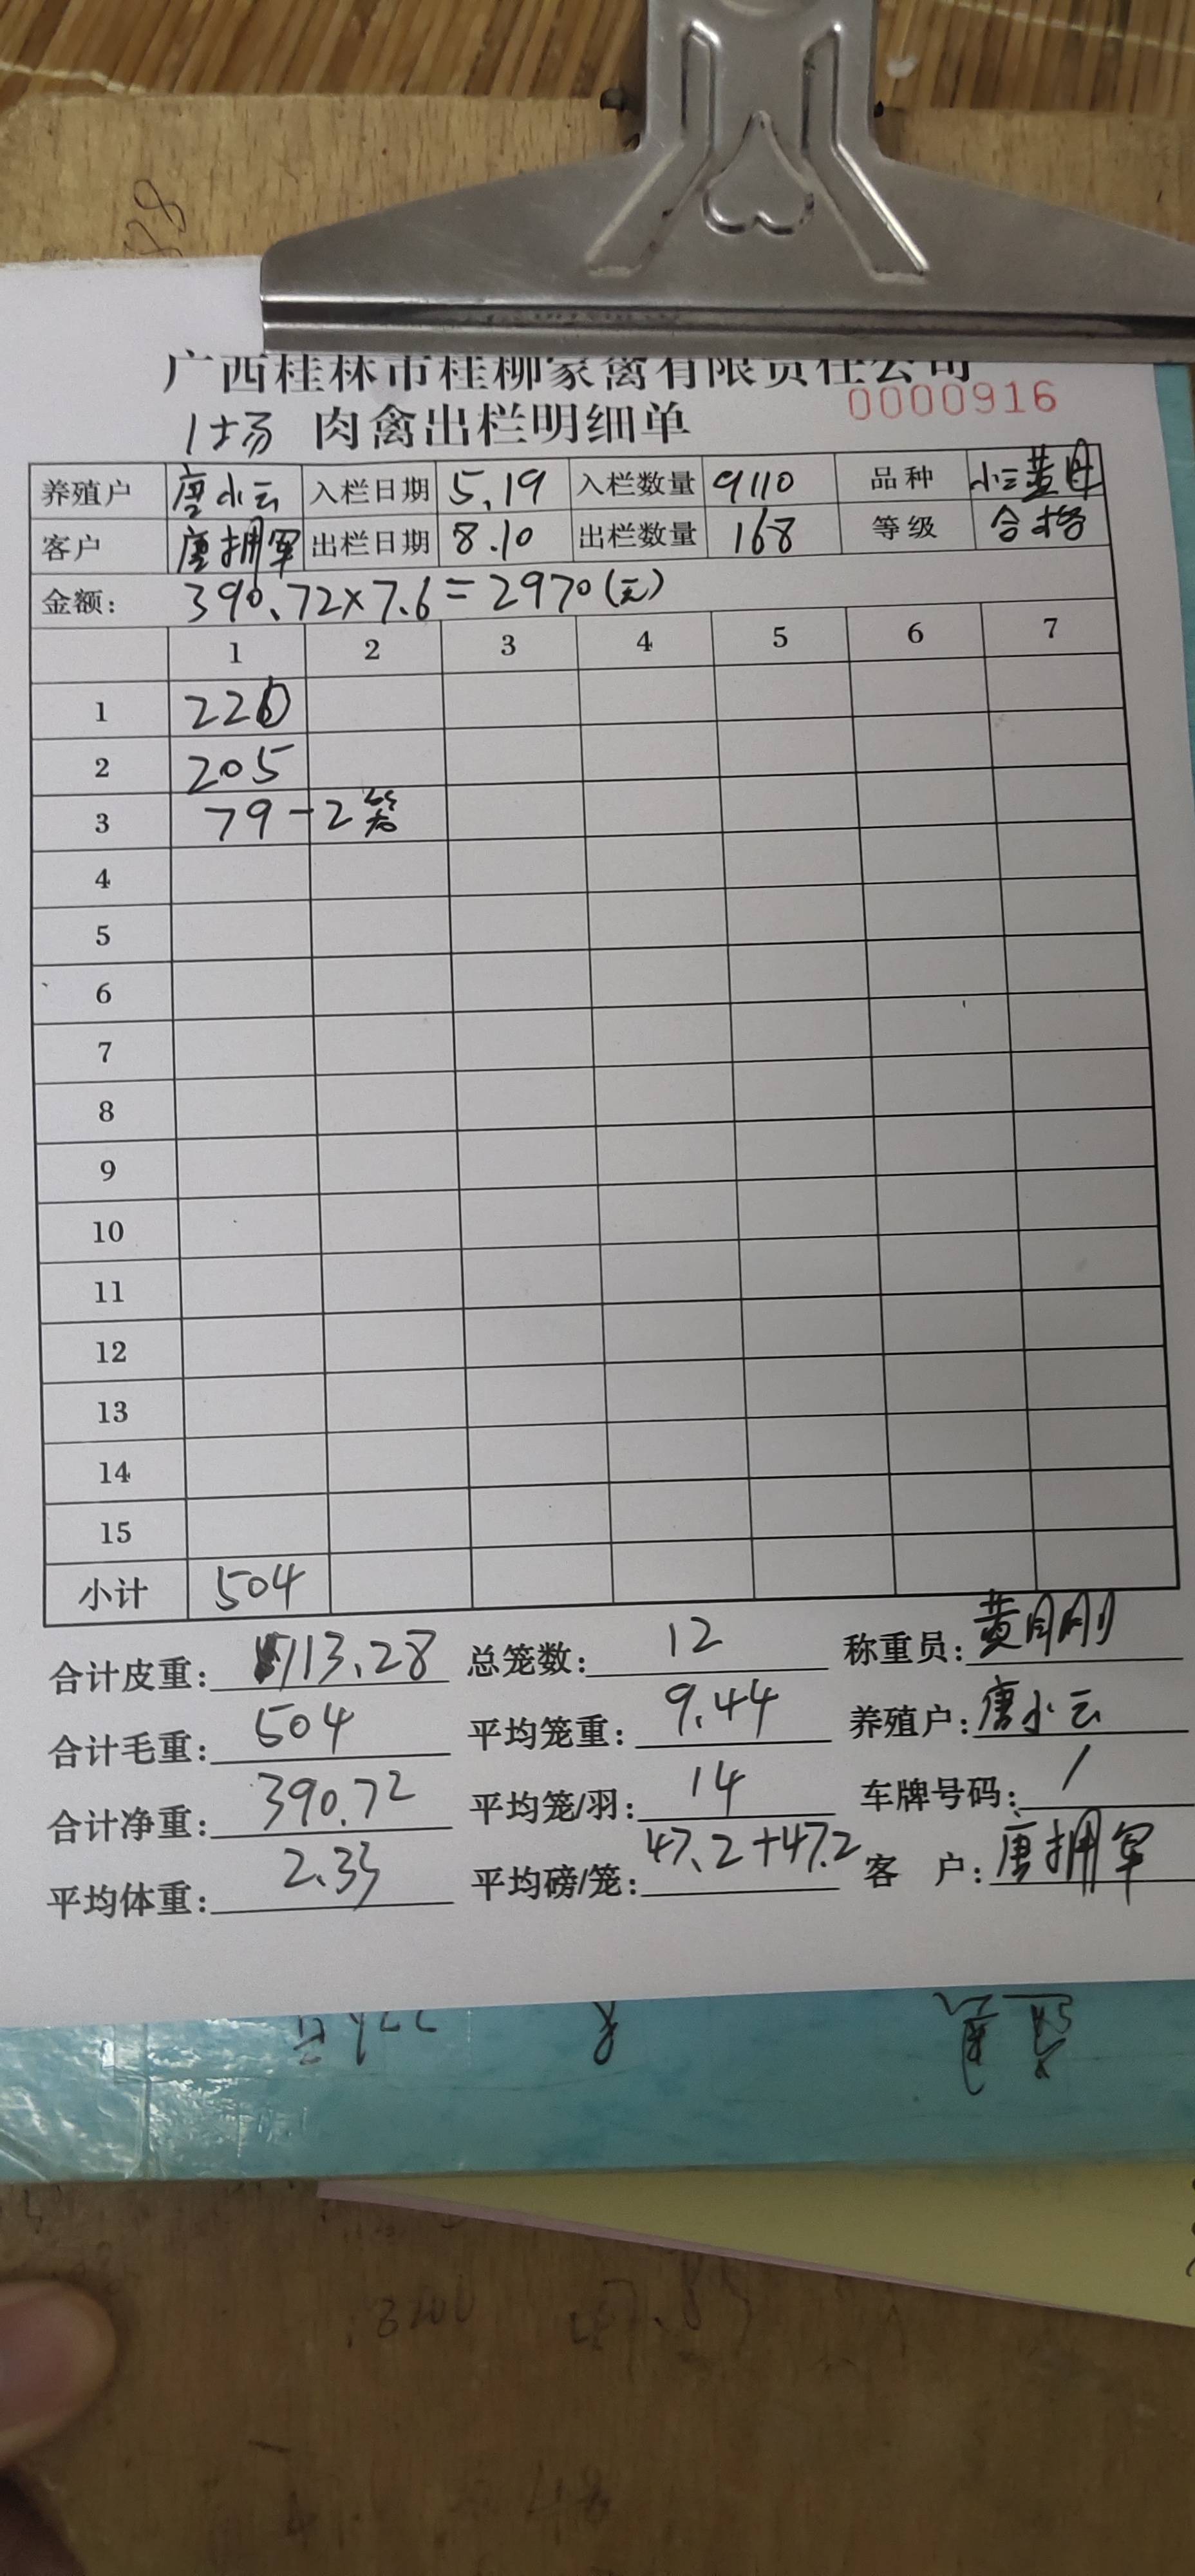 广西桂林市桂柳家禽有限责任公司
1场 肉禽出栏明细单 0000916
养殖户 唐小云 入栏日期 5.19 入栏数量 9110 品种 小三黄母
客户 唐拥军 出栏日期 8.10 出栏数量 168 等级 合格
金额: 390.72×7.6=2970(元)
1 2 3 4 5 6 7
1 220
2 205
3 79-2笼
4
5
6
7
8
9
10
11
12
13
14
15
小计 504
合计皮重: 113.28 总笼数: 12 称重员: 黄月刚
合计毛重: 504 平均笼重: 9.44 养殖户: 唐小云
合计净重: 390.72 平均笼/羽: 14 车牌号码: /
平均体重: 2.33 平均磅/笼: 47.2+47.2 客 户: 唐拥军